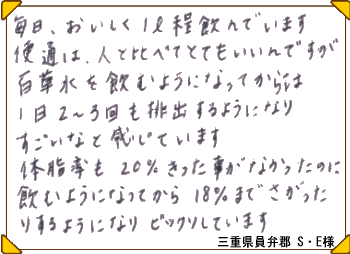 毎日、おいしく1ℓ程飲んでいます
便通は、人と比べてとてもいいんですが
百草水を飲むようになってからは
1日2〜3回も排出するようになり
すごいなと感じています
体脂率も20%きった事がなかったのに
飲むようになってから18%までさがった
りするようになりビックリしています
三重県員弁郡 S・E様